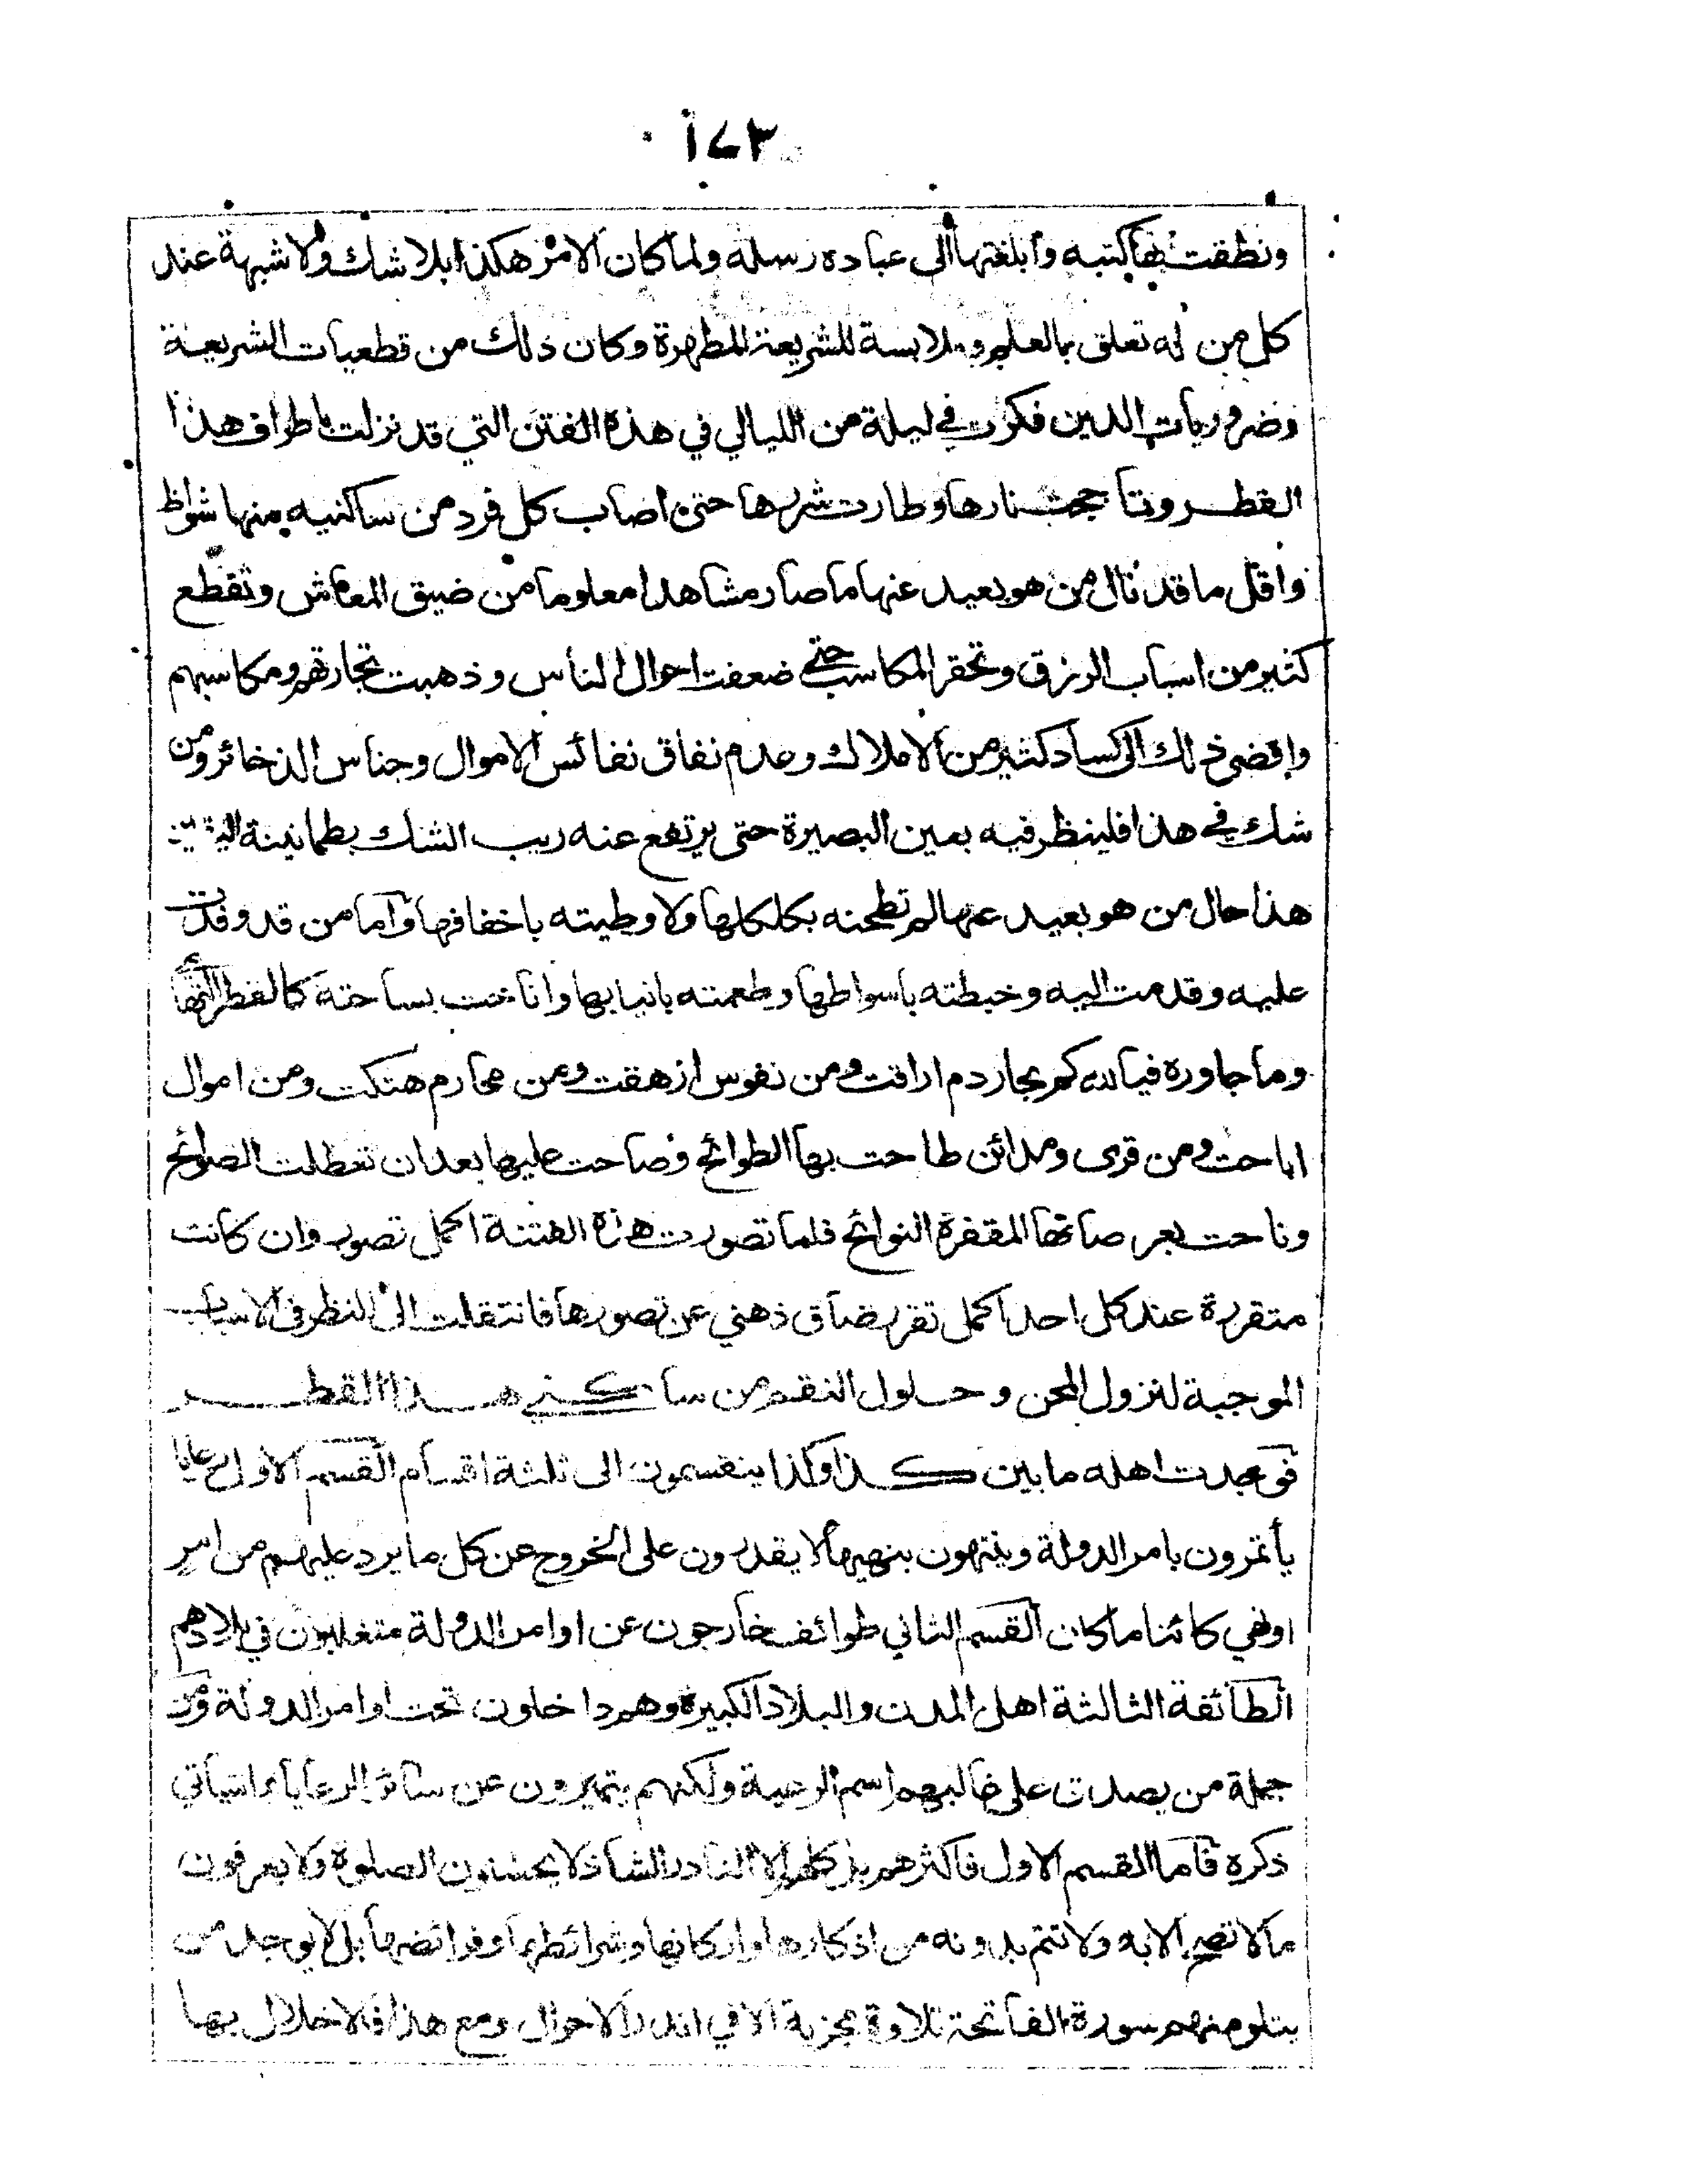 ١٧٣
ونطقت بها كتبه وأبلغتها إلى عباده رسله ولما كان الامر هكذا بلا شك ولا شبهة عند
كل من له تعلق بالعلم وملابسة للشريعة المطهرة وكان ذلك من قطعيات الشريعة
وضروريات الدين فكرت في ليلة من الليالي في هذه الفتن التي قد نزلت باطراف هذا
القطر وتأججت نارها وطارت شررها حتى اصاب كل فرد من ساكنيه منها شواظ
واقل ما قد نال من هو بعيد عنها ما صار مشاهدا معلوما من ضيق المعاش وتقطع
كثير من اسباب الرزق وتحقر المكاسب حتى ضعفت احوال الناس وذهبت تجارتهم ومكاسبهم
وافضى ذلك الى كساد كثير من الاملاك وعدم نفاق نفائس الاموال وجناس الذخائر ومن
شك في هذا فلينظر فيه بعين البصيرة حتى يرتفع عنه ريب الشك بطمانينة اليقين
هذا حال من هو بعيد عنها لم تطحنه بكلكلها ولا وطيته باخفافها وأما من قد وفدت
عليه وقدمت اليه وخبطته باسواطها وطعمته بانيابها واناخت بساحته كالقطر التهامي
وما جاوره فيالله كم بحار دم اراقت ومن نفوس ازهقت ومن محارم هتكت ومن اموال
اباحت ومن قرى ومدائن طاحت بها الطوائح وصاحت عليها بعد ان تعطلت الصوائح
وناحت بعرصاتها المقفرة النوائح فلما تصورت هذه الفتنة اكمل تصور وان كانت
متقررة عند كل احد أكمل تقرر ضاق ذهني عن تصورها فانتقلت الى النظر في الاسباب
الموجبة لنزول المحن وحلول النقم من ساكني هذا القطر
فوجدت اهله ما بين كذا وكذا ينقسمون الى ثلثة اقسام القسم الاول رعايا
يأتمرون بامر الدولة وينتهون بنهيها لا يقدرون على الخروج عن كل ما يرد عليهم من امر
او نهي كائنا ما كان القسم الثاني طوائف خارجون عن اوامر الدولة متغلبون في بلادهم
الطائفة الثالثة اهل المدن والبلاد الكبيرة وهم داخلون تحت اوامر الدولة ومن
جملة من يصدق على غالبهم اسم الرعية ولكنهم يتميزون عن سائر الرعايا بما سيأتي
ذكره فأما القسم الاول فاكثرهم بل كلهم إلا النادر الشاذ لا يحسنون الصلوة ولا يعرفون
ما لا تصح إلا به ولا تتم بدونه من اذكارها واركانها وشرائطها وفرائضها بل لا يوجد من
يتلو منهم سورة الفاتحة تلاوة مجزية الا في اندر الاحوال ومع هذا فالاخلال بها